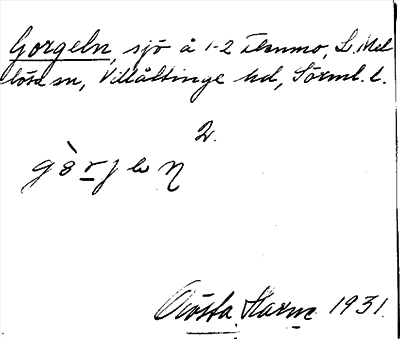 Gorgeln, sjö å 1-2 Flenmo, L. Mel
lösa sn, Villåttinge hd, Sörml. l.
2.
gòrjəlŋ
Gösta Harm 1931.